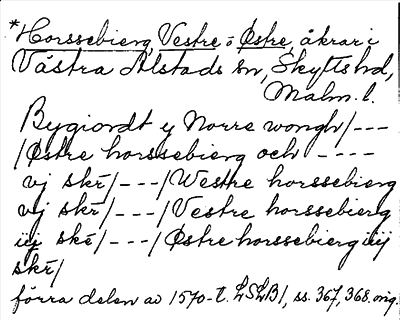 *Horssebierg, Vestre o Østre, åkrar i
Västra Alstads sn, Skytts hd,
Malm. l.
Bygiordt y Norre wongh/---
/Østre horssebierg och ----
vj skr̄/---/Westre horssebierg
vij skr̄/---/Vestre horssebierg
iij skr̄/---/Østre horssebierg iiij
skr̄/
förra delen av 1570-t. LSLB1, ss. 367, 368. orig.